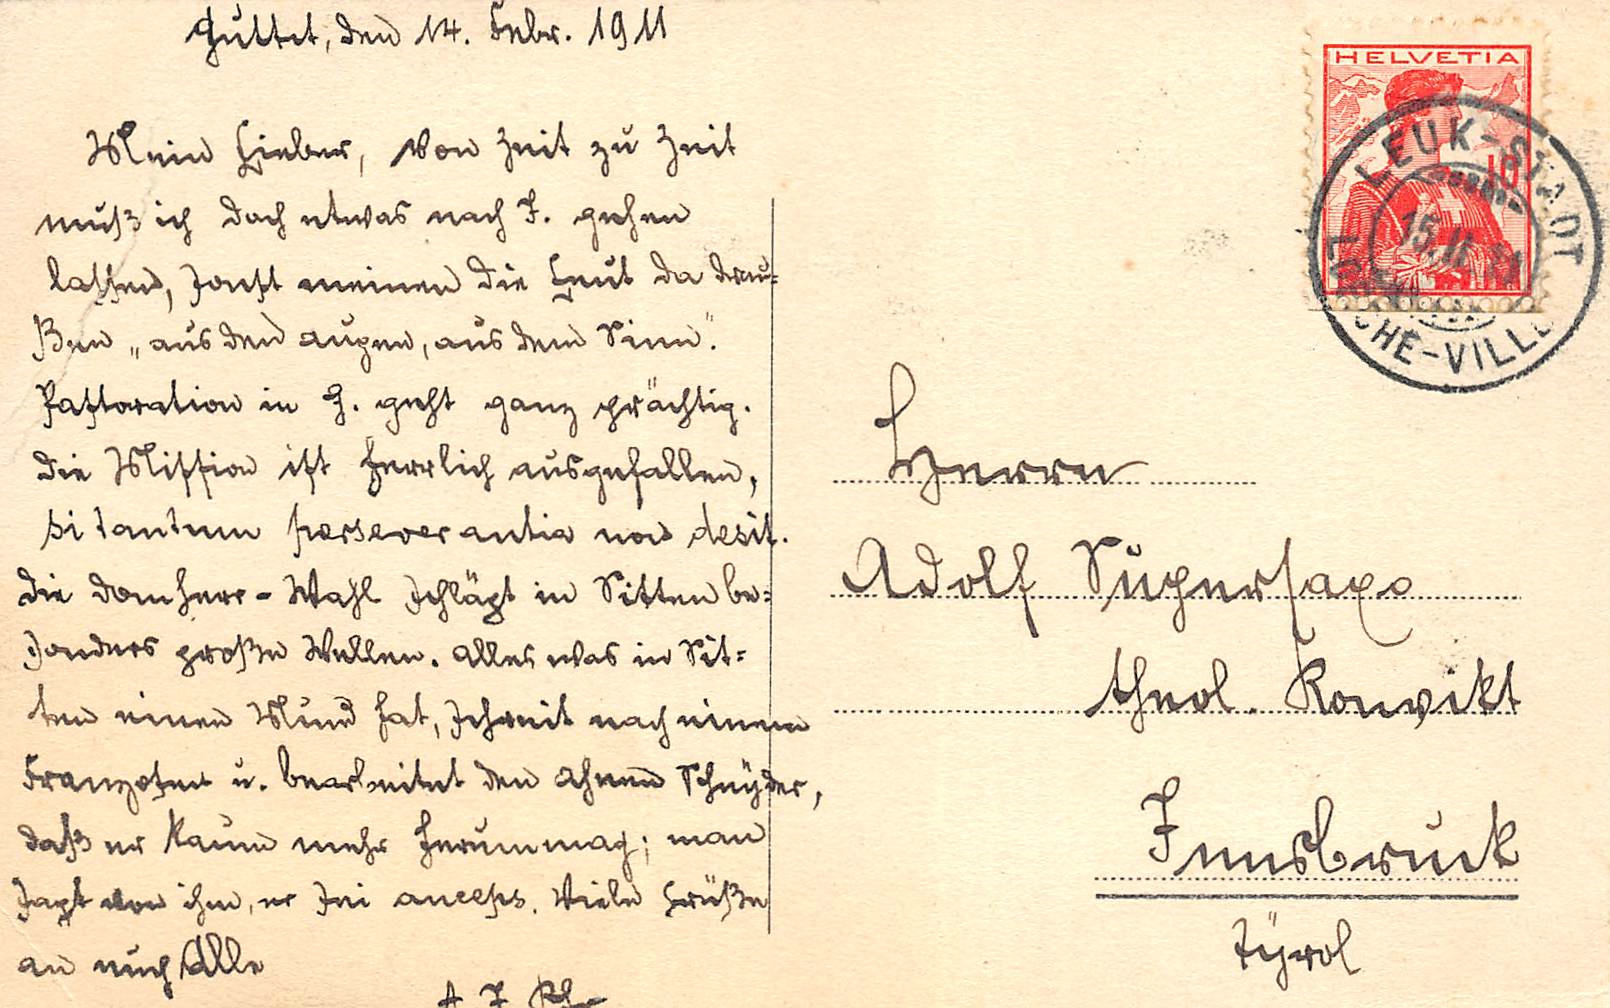 Guttet, den 14. Febr. 1911
Mein Lieber, von Zeit zu Zeit
muß ich doch etwas nach I. gehen
lassen, sonst meinen die Leut da drau-
ßen „aus den Augen, aus dem Sinn“.
Pastoration in G. geht ganz prächtig.
Die Mission ist herrlich ausgefallen,
si tantum perseverantia non desit.
Die Domherr-Wahl schlägt in Sitten be-
sonders große Wellen. Alles was in Sit-
ten einen Mund hat, schreit nach einem
Franzosen u. bearbeitet den Schnÿder,
daß er kaum mehr herummag; man
sagt von ihm, er sei anceps. Viele Grüße
an euch Alle
HELVETIA
10
LEUK-STADT
15.II.11
LOÈCHE-VILLE
Herrn
Adolf Supersaxo
theol. Konvikt
Innsbruck
Tÿrol